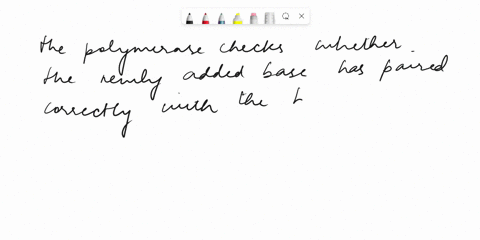 the polymerase checks whether
the newly added base has paired
correctly with the t